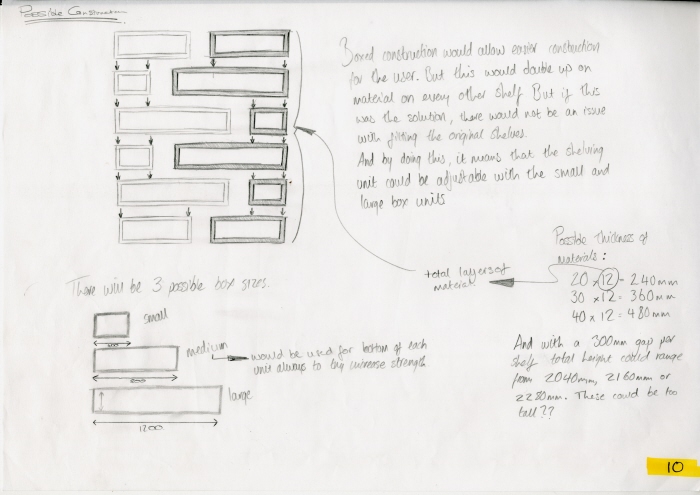 Possible Construction
Boxed construction would allow easier construction
for the user. But this would double up on
material on every other shelf But if this
was the solution, there would not be an issue
with fitting the original shelves.
And by doing this, it means that the shelving
unit could be adjustable with the small and
large box units
Possible thickness of
materials:
total layers of
material
20 x 12 = 240mm
30 x 12 = 360mm
40 x 12 = 480mm
And with a 300mm gap per
shelf total height could range
from 2040mm, 2160mm or
2280mm. These could be too
tall??
There will be 3 possible box sizes.
small
medium
would be used for bottom of each
unit always to increase strength
800
large
1200
10